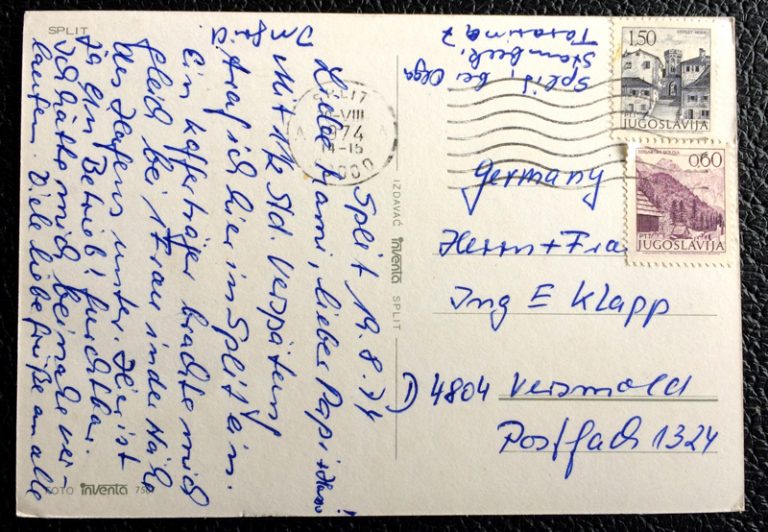 SPLIT
Split 19.8.74
Liebe Mami, lieber Papi + Hansi!
Mit 1½ Std. Verspätung
traf ich hier in Split ein.
Ein Kofferträger brachte mich
gleich bei 1 Frau in der Nähe
des Hafens unter. Hier ist
ja ein Betrieb! furchtbar.
Ich hätte mich beinahe ver-
laufen. Viele liebe Grüße an alle
Split, bei Olga
7
SPLIT
VIII
74
1.50
JUGOSLAVIJA
0.60
JUGOSLAVIJA
Germany
Herrn + Frau
Ing E Klapp
D 4804 Versmold
Postfach 1324
IZDAVAČ inventa SPLIT
FOTO inventa